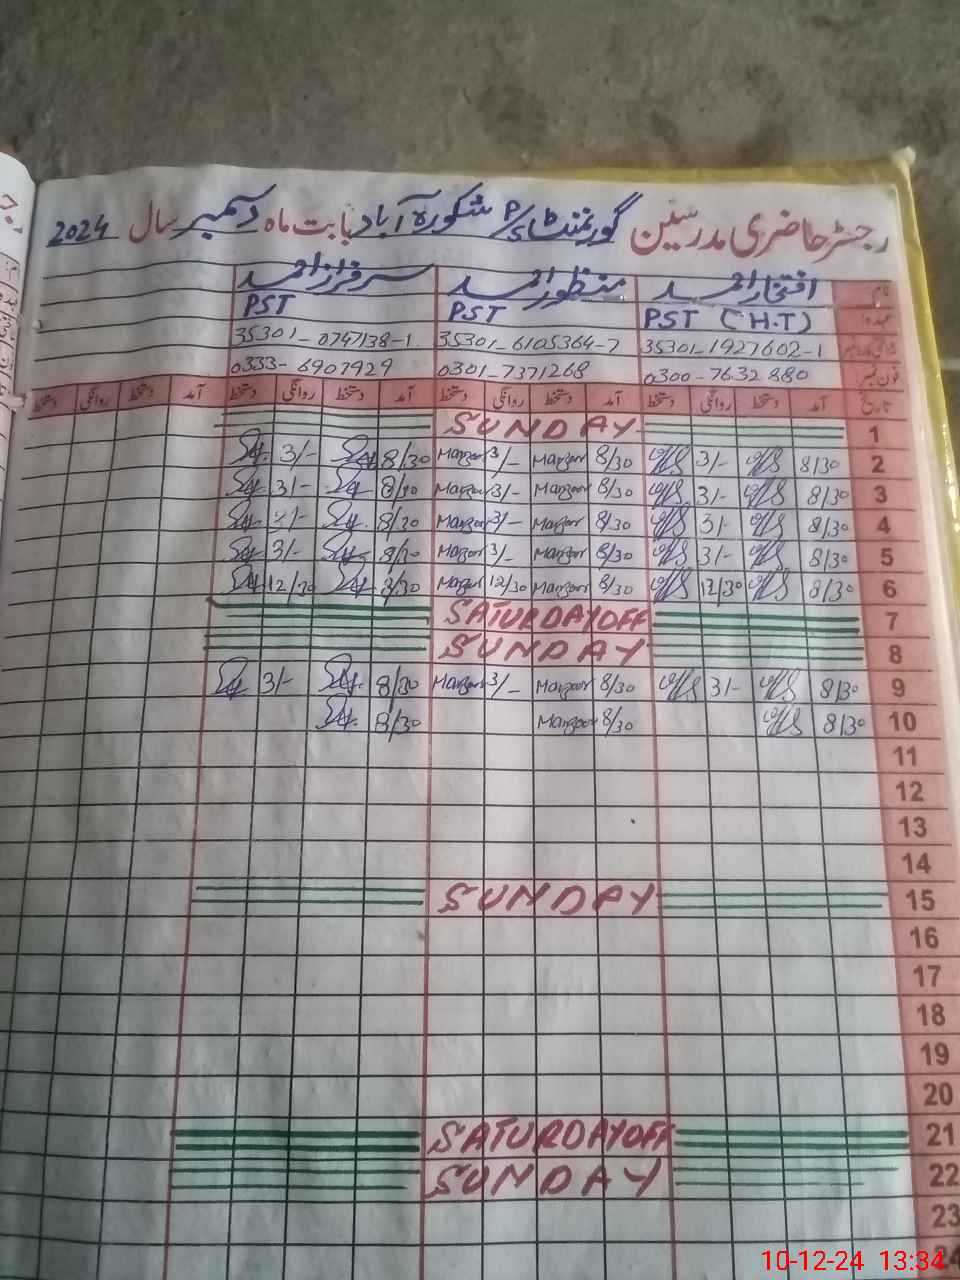 رجسٹر حاضری مدرسین گورنمنٹ P/S شکورہ آباد بابت ماہ دسمبر سال 2024
نام افتخار احمد منظور احمد سرفراز احمد
عہدہ PST (H.T) PST PST
35301-1927602-1 35301-6105364-7 35301-0747138-1
فون نمبر 0300-7632880 0301-7371268 0333-6907929
تاریخ آمد دستخط روانگی دستخط آمد دستخط روانگی دستخط آمد دستخط روانگی دستخط آمد دستخط روانگی دستخط
1 SUNDAY
2 8/30 3/- 8/30 Manzoor 3/- Manzoor 8/30 3/-
3 8/30 3/- 8/30 Manzoor 3/- Manzoor 8/30 3/-
4 8/30 3/- 8/30 Manzoor 3/- Manzoor 8/30 3/-
5 8/30 3/- 8/30 Manzoor 3/- Manzoor 8/30 3/-
6 8/30 12/30 8/30 Manzoor 12/30 Manzoor 8/30 12/30
7 SATURDAY OFF
8 SUNDAY
9 8/30 3/- 8/30 Manzoor 3/- Manzoor 8/30 3/-
10 8/30 8/30 Manzoor 8/30
11
12
13
14
15 SUNDAY
16
17
18
19
20
21 SATURDAY OFF
22 SUNDAY
23
24
10-12-24 13:34